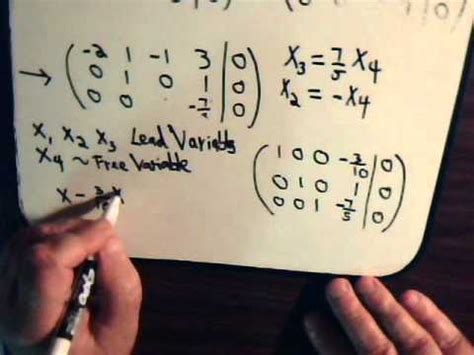 → ( -2 1 -1 3 | 0 )
( 0 1 0 1 | 0 )
( 0 0 -7/5 | 0 )
X₃ = 7/5 X₄
X₂ = -X₄
X₁ X₂ X₃ Lead Variables
X₄ ~ Free Variable
X - 3/10 X
( 1 0 0 -3/10 | 0 )
( 0 1 0 1 | 0 )
( 0 0 1 -7/5 | 0 )